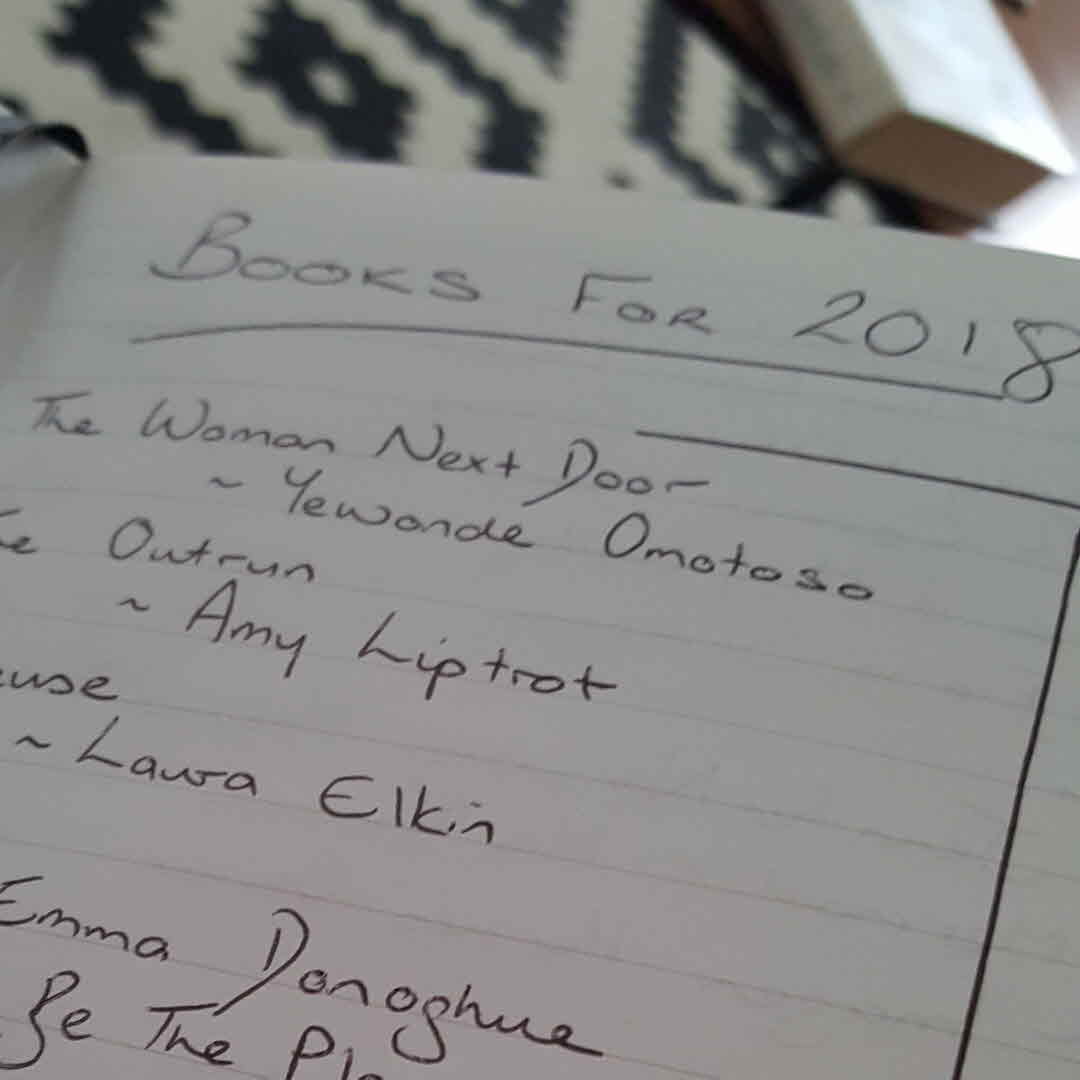 BOOKS FOR 2018
The Woman Next Door
~ Yewande Omotoso
Outrun
~ Amy Liptrot
use
~ Laura Elkin
Emma Donoghue
Be The